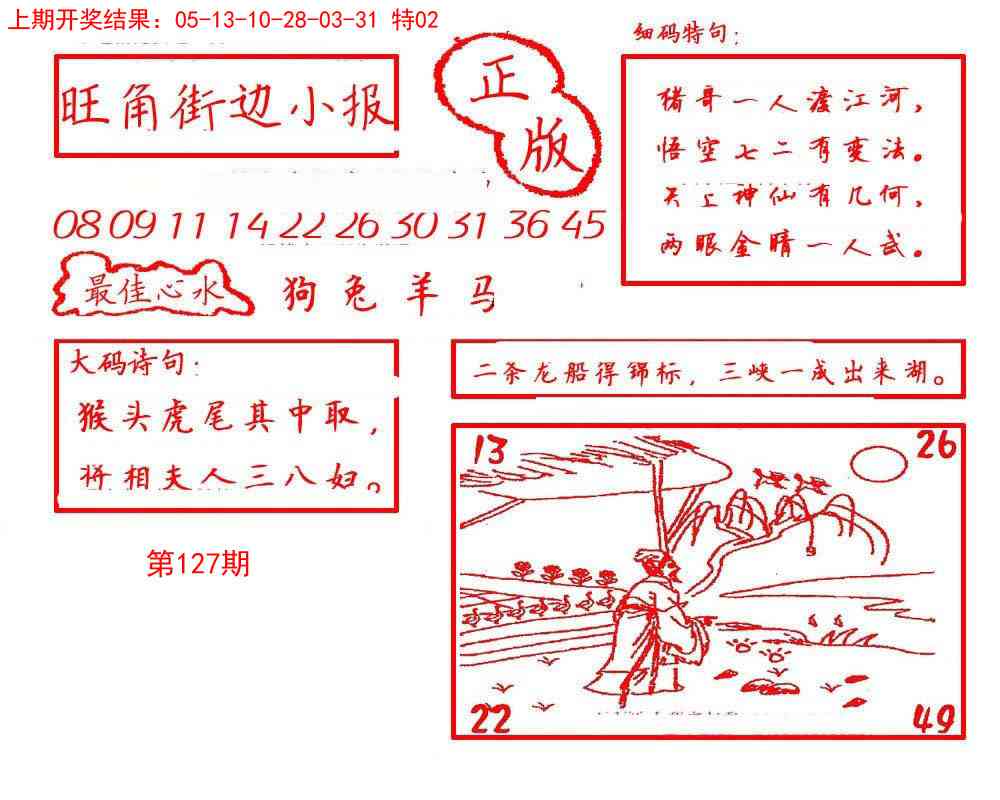 上期开奖结果：05-13-10-28-03-31 特02
旺角街边小报
正版
细码特句；
猪哥一人渡江河，
悟空七二有变法。
天上神仙有几何，
两眼金睛一人武。
08 09 11 14 22 26 30 31 36 45
最佳心水
狗兔羊马
大码诗句：
猴头虎尾其中取，
将相夫人三八妇。
二条龙船得锦标，三峡一成出来湖。
13
26
22
49
第127期